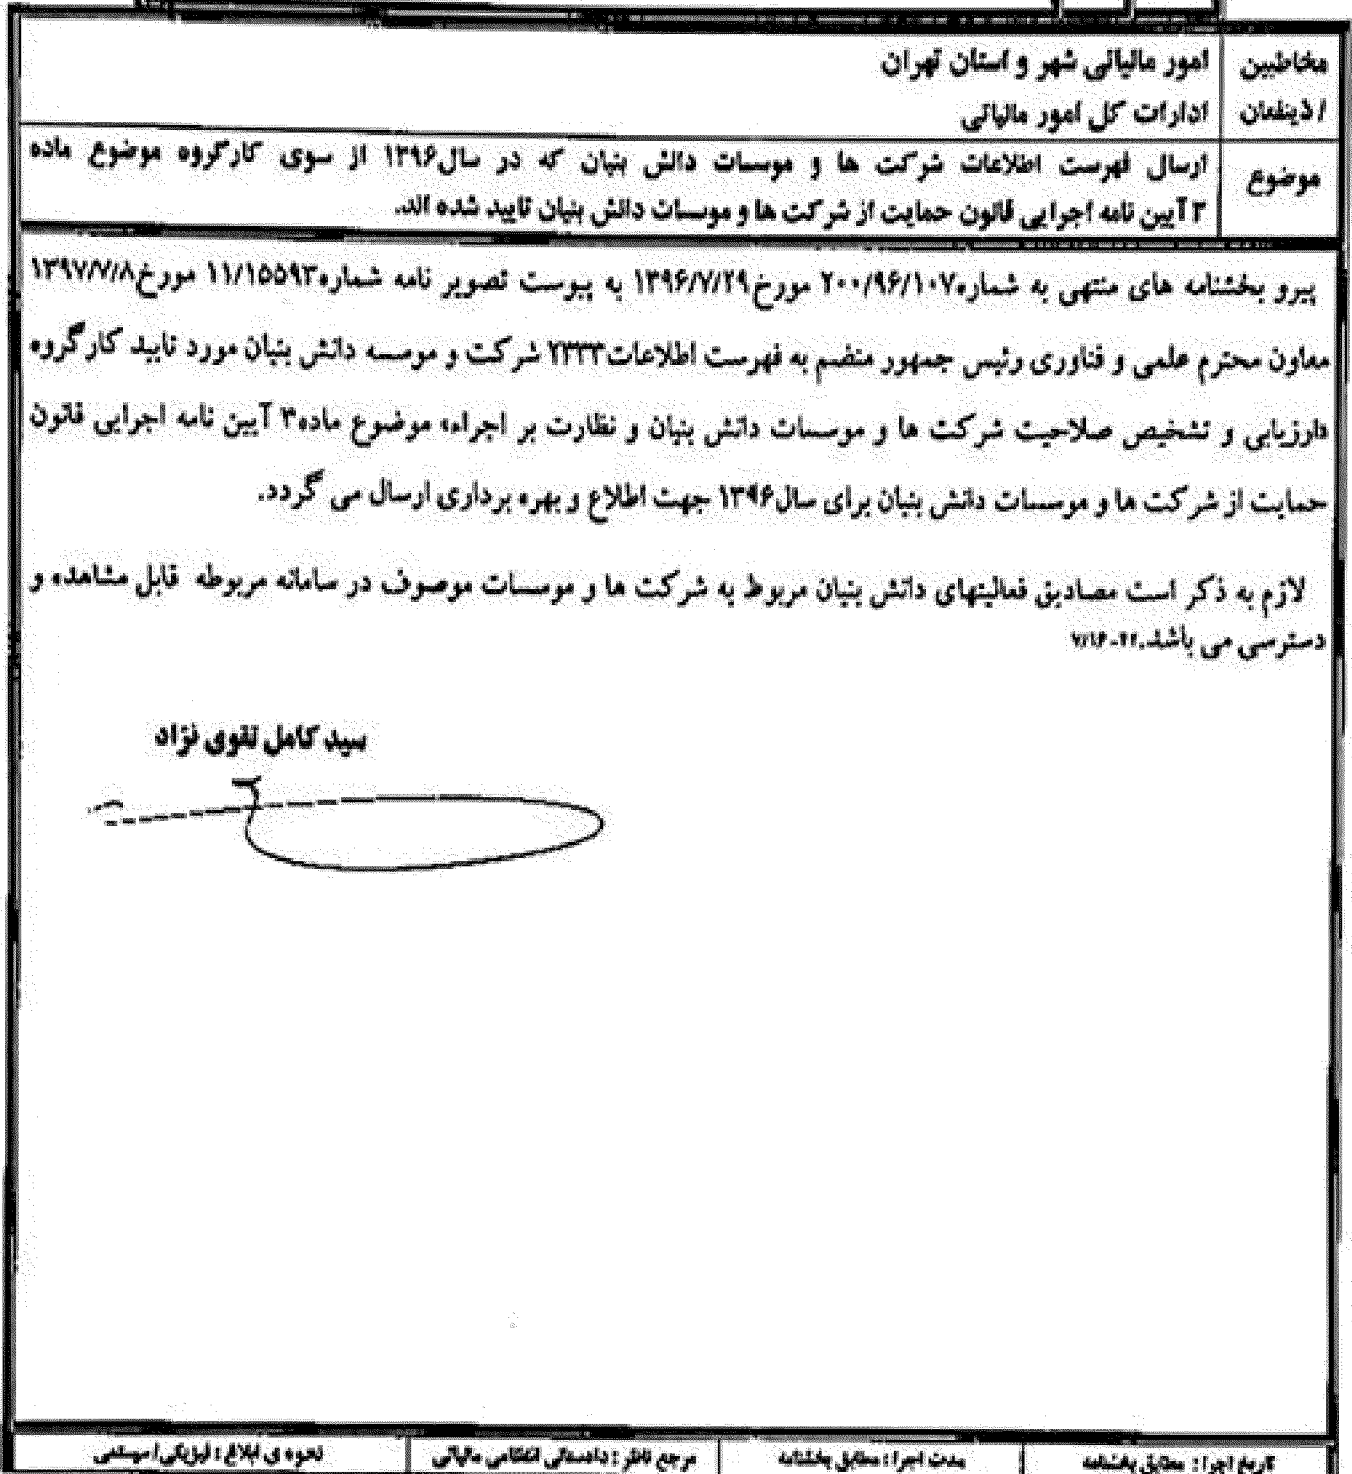 مخاطبین
/ ذینفعان
امور مالیاتی شهر و استان تهران
ادارات کل امور مالیاتی
موضوع
ارسال فهرست اطلاعات شرکت ها و موسسات دانش بنیان که در سال۱۳۹۶ از سوی کارگروه موضوع ماده
۳ آیین نامه اجرایی قانون حمایت از شرکت ها و موسسات دانش بنیان تایید شده اند.
پیرو بخشنامه های منتهی به شماره۲۰۰/۹۶/۱۰۷ مورخ۱۳۹۶/۷/۲۹ به پیوست تصویر نامه شماره۱۱/۱۵۵۹۳ مورخ۱۳۹۷/۷/۸
معاون محترم علمی و فناوری رئیس جمهور منضم به فهرست اطلاعات۲۳۳۳ شرکت و موسسه دانش بنیان مورد تایید کارگروه
«ارزیابی و تشخیص صلاحیت شرکت ها و موسسات دانش بنیان و نظارت بر اجرا» موضوع ماده۳ آیین نامه اجرایی قانون
حمایت از شرکت ها و موسسات دانش بنیان برای سال۱۳۹۶ جهت اطلاع و بهره برداری ارسال می گردد.
لازم به ذکر است مصادیق فعالیتهای دانش بنیان مربوط به شرکت ها و موسسات موصوف در سامانه مربوطه قابل مشاهده و
دسترسی می باشد.
سید کامل تقوی نژاد
تاریخ اجرا : مطابق بخشنامه
مدت اجرا : مطابق بخشنامه
مرجع ناظر : دادستانی انتظامی مالیاتی
نحوه ی ابلاغ : فیزیکی/سیستمی